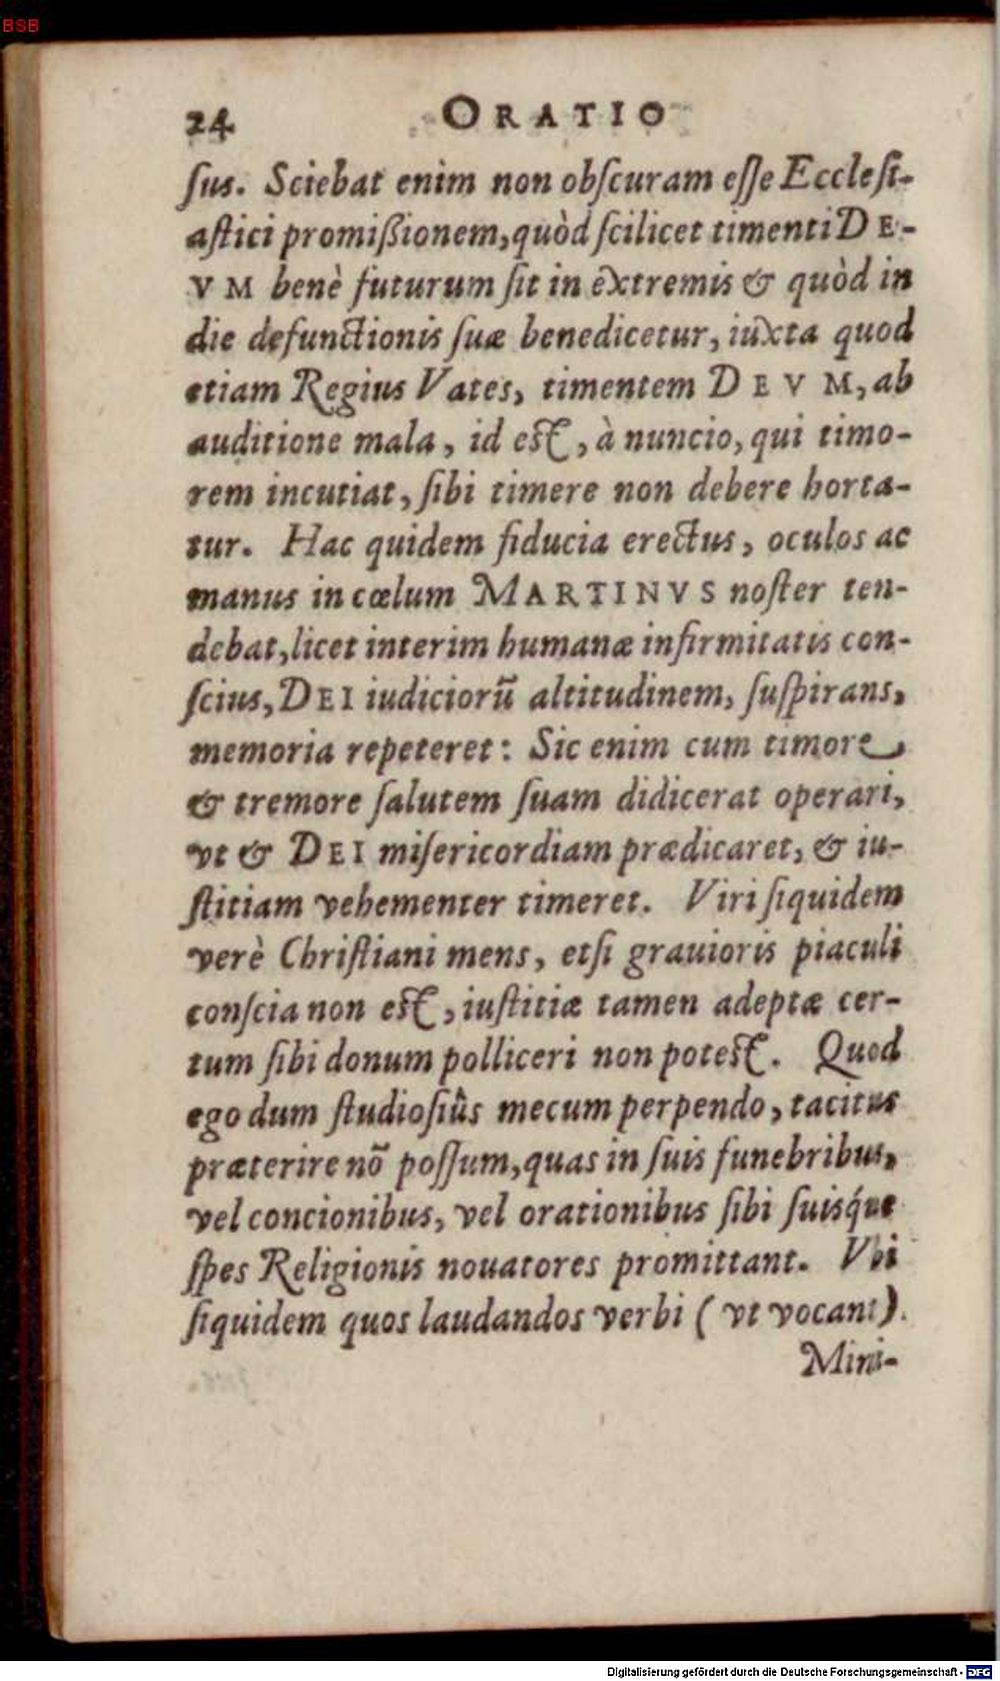 BSB
24 ORATIO
ſus. Sciebat enim non obſcuram eſſe Eccleſi-
aſtici promiſſionem, quòd ſcilicet timenti DE-
VM benè futurum ſit in extremis & quòd in
die defunctionis ſuæ benedicetur, iuxta quod
etiam Regius Vates, timentem DEVM, ab
auditione mala, id eſt, à nuncio, qui timo-
rem incutiat, ſibi timere non debere horta-
tur. Hac quidem fiducia erectus, oculos ac
manus in cœlum MARTINVS noſter ten-
debat, licet interim humanæ infirmitatis con-
ſcius, DEI iudiciorū altitudinem, ſuſpirans,
memoria repeteret: Sic enim cum timore
& tremore ſalutem ſuam didicerat operari,
vt & DEI miſericordiam prædicaret, & iu-
ſtitiam vehementer timeret. Viri ſiquidem
verè Chriſtiani mens, etſi grauioris piaculi
conſcia non eſt, iuſtitiæ tamen adeptæ cer-
tum ſibi donum polliceri non poteſt. Quod
ego dum ſtudioſiùs mecum perpendo, tacitus
præterire nō poſſum, quas in ſuis funebribus,
vel concionibus, vel orationibus ſibi ſuisq́ue
ſpes Religionis nouatores promittant. Vbi
ſiquidem quos laudandos verbi (vt vocant)
Mini-
Digitalisierung gefördert durch die Deutsche Forschungsgemeinschaft - DFG